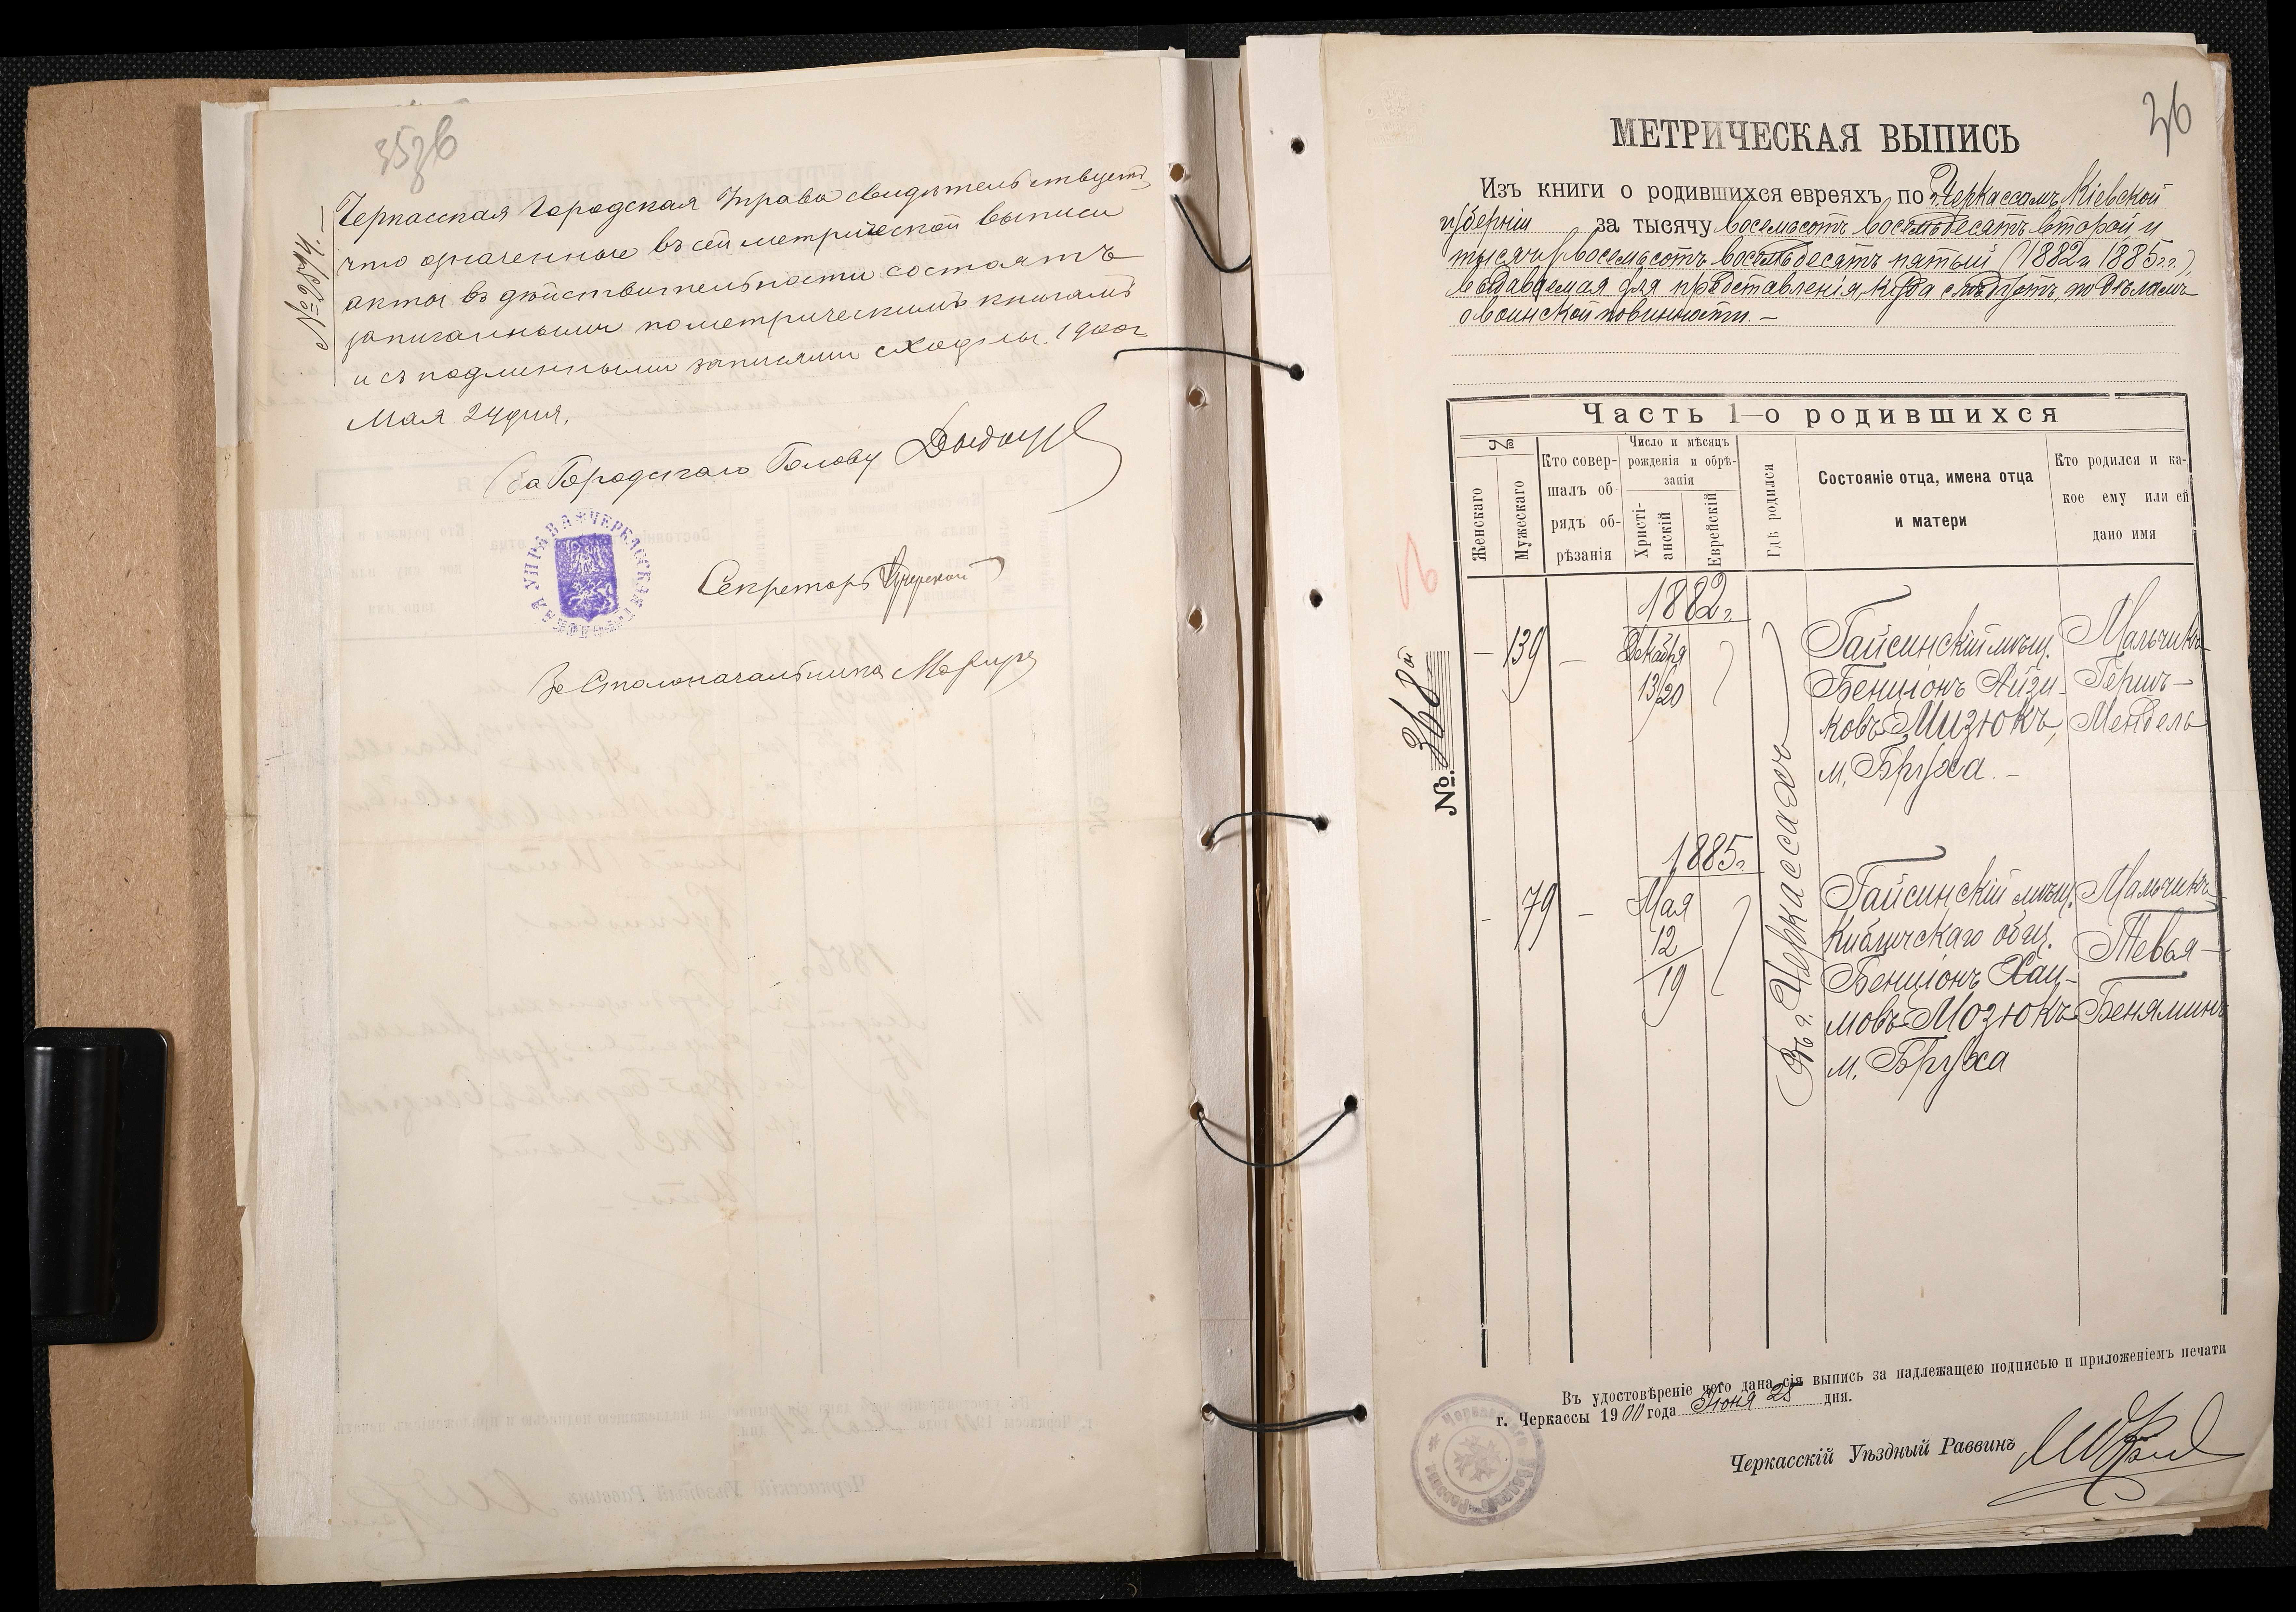 35зв
№ 2574.
Черкасская Городская Управа свидѣтельствуетъ,
что означенные въ сей метрической выписи
акты въ дѣйствительности состоятъ
записанными по метрическимъ книгамъ
и съ подлинными записями сходны. 1900 г.
Мая 24 дня.
За Городскаго Голову
ЧЕРКАССКАЯ УПРАВА
Секретарь
За Столоначальника
36
МЕТРИЧЕСКАЯ ВЫПИСЬ
Изъ книги о родившихся евреяхъ по г. Черкассамъ, Кіевской
губерніи за тысячу восемьсотъ восемьдесятъ второй и
тысячу восемьсотъ восемьдесятъ пятый (1882 и 1885 гг.),
выдаваемая для представленія, куда слѣдуетъ, по дѣламъ
о воинской повинности. —
№ 368 ой
Часть 1—о родившихся
№
Женскаго
Мужескаго
Кто совер-
шалъ об
рядъ об-
рѣзанія
Число и мѣсяцъ
рожденія и обрѣ-
занія
Христі-
анскій
Еврейскій
Гдѣ родился
Состояніе отца, имена отца
и матери
Кто родился и ка-
кое ему или ей
дано имя
1882 г.
— 139 — Декабря Гайсинскій мѣщ. Мальчикъ
13/20 Бенціонъ Айзи- Гершъ—
ковъ Мизюкъ, Мендель
м. Бруха. —
Въ г. Черкассахъ
1885 г.
— 79 — Мая Гайсинскій мѣщ. Мальчикъ
12 Кибличскаго общ. Тевья—
19 Бенціонъ Хаи-
мовъ Мозюкъ Беняминъ
м. Бруха
Въ удостовѣреніе чего дана сія выпись за надлежащею подписью и приложеніемъ печати
г. Черкассы 1900 года Іюня 25 дня.
Черкасскій Уѣздный Раввинъ